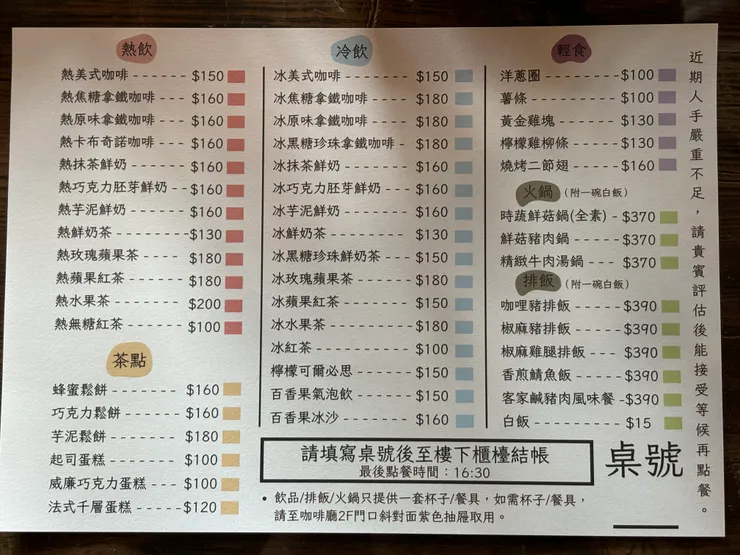 熱飲
熱美式咖啡 - - - - - - $150
熱焦糖拿鐵咖啡 - - - $160
熱原味拿鐵咖啡 - - - $160
熱卡布奇諾咖啡 - - - $160
熱抹茶鮮奶 - - - - - - $160
熱巧克力胚芽鮮奶 - - $160
熱芋泥鮮奶 - - - - - - $160
熱鮮奶茶 - - - - - - - -$130
熱玫瑰蘋果茶 - - - - - $180
熱蘋果紅茶 - - - - - - $180
熱水果茶 - - - - - - - $200
熱無糖紅茶 - - - - - - $100
茶點
蜂蜜鬆餅 - - - - - - - $160
巧克力鬆餅 - - - - - - $160
芋泥鬆餅 - - - - - - - $180
起司蛋糕 - - - - - - - $100
威廉巧克力蛋糕 - - - $100
法式千層蛋糕 - - - - - $120
冷飲
冰美式咖啡 - - - - - - - $150
冰焦糖拿鐵咖啡 - - - - $180
冰原味拿鐵咖啡 - - - - $180
冰黑糖珍珠拿鐵咖啡 - $180
冰抹茶鮮奶 - - - - - - - $160
冰巧克力胚芽鮮奶 - - - $160
冰芋泥鮮奶 - - - - - - - $160
冰鮮奶茶 - - - - - - - - $130
冰黑糖珍珠鮮奶茶 - - - $150
冰玫瑰蘋果茶 - - - - - - $180
冰蘋果紅茶 - - - - - - - $150
冰水果茶 - - - - - - - - $180
冰紅茶 - - - - - - - - - $100
檸檬可爾必思 - - - - - - $150
百香果氣泡飲 - - - - - - $150
百香果冰沙 - - - - - - - $160
輕食
洋蔥圈 - - - - - - - -$100
薯條 - - - - - - - - - $100
黃金雞塊 - - - - - - - $130
檸檬雞柳條 - - - - - - $130
燒烤二節翅 - - - - - - $160
火鍋 (附一碗白飯)
時蔬鮮菇鍋(全素) - $370
鮮菇豬肉鍋 - - - - - - $370
精緻牛肉湯鍋 - - - - $370
排飯 (附一碗白飯)
咖哩豬排飯 - - - - $390
椒麻豬排飯 - - - - $390
椒麻雞腿排飯 - - - $390
香煎鯖魚飯 - - - - $390
客家鹹豬肉風味餐 -$390
白飯 - - - - - - - - $15
近期人手嚴重不足，請貴賓評估後能接受等候再點餐。
請填寫桌號後至樓下櫃檯結帳
最後點餐時間：16:30
• 飲品/排飯/火鍋只提供一套杯子/餐具，如需杯子/餐具，
請至咖啡廳2F門口斜對面紫色抽屜取用。
桌號